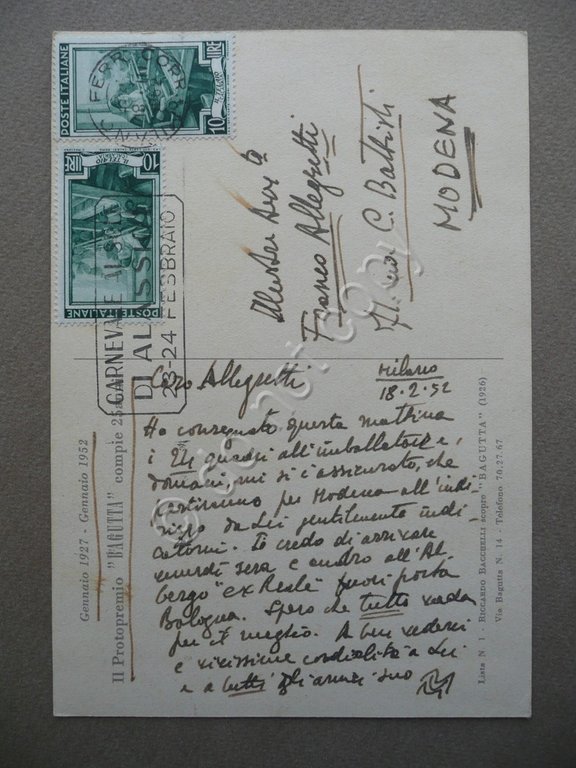 POSTE ITALIANE
10 LIRE
IL TELAIO
FERR. CORR.
10 LIRE
IL TELAIO
POSTE ITALIANE
CARNEVALE AL
DI ALASSIO
23-24 FEBBRAIO
Franco Allegretti
C. Battisti
MODENA
Milano
18.2.52
Caro Allegretti
Ho consegnato questa mattina
i 24 quadri all'imballatore e,
domani, mi si è assicurato, che
partiranno per Modena all'indi-
rizzo da Lei gentilmente indi-
catomi. Io credo di arrivare
venerdì sera e andrò all'Al-
bergo "ex Reale" fuori porta
Bologna. Spero che tutto vada
per il meglio. A ben vederci
e vivissime cordialità a Lei
e a tutti gli amici suo
Gennaio 1927 - Gennaio 1952
Il Protopremio "BAGUTTA" compie 25
Lista N. 1 - RICCARDO BACCHELLI scopre "BAGUTTA" (1926)
Via Bagutta N. 14 - Telefono 70.27.67